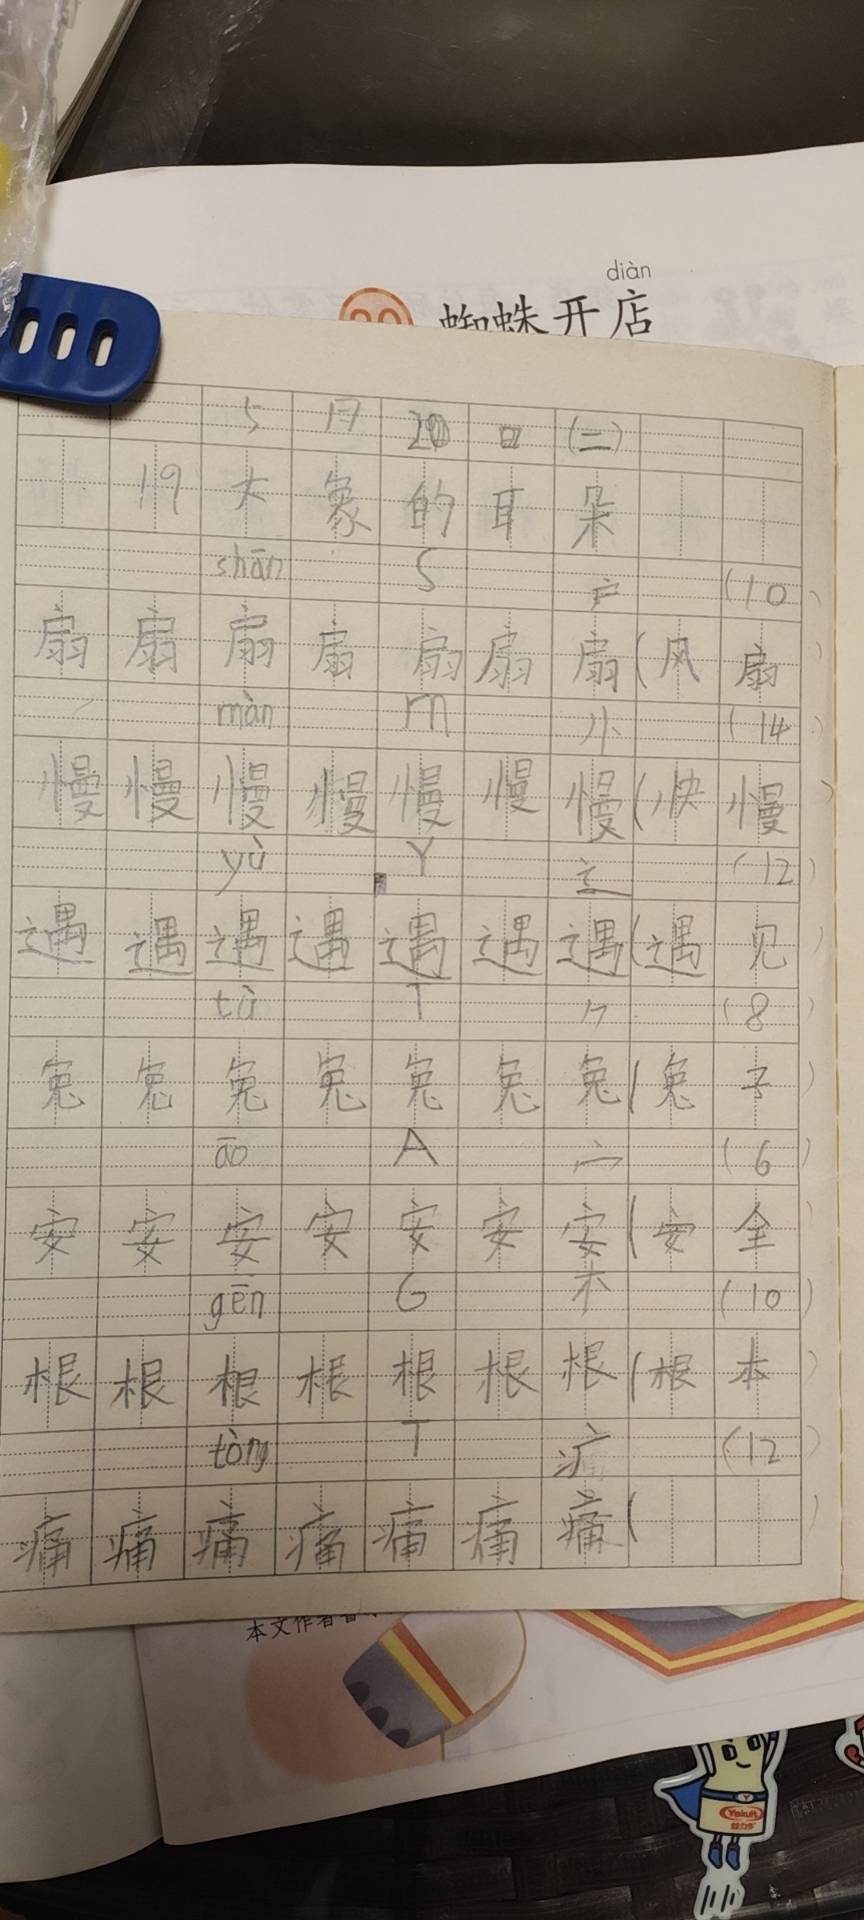 diàn
蜘蛛开店
5月20日(二)
19大象的耳朵
shān S 户 (10)
扇扇扇扇扇扇扇(风扇)
màn m 忄 (14)
慢慢慢慢慢慢慢(快慢)
yù Y 辶 (12)
遇遇遇遇遇遇遇(遇见)
tù T ⺈ (8)
兔兔兔兔兔兔兔(兔子)
āo A 宀 (6)
安安安安安安安(安全)
gēn G 木 (10)
根根根根根根根(根本)
tòng T 疒 (12)
痛痛痛痛痛痛痛( )
本文作者
Yakult
益力多